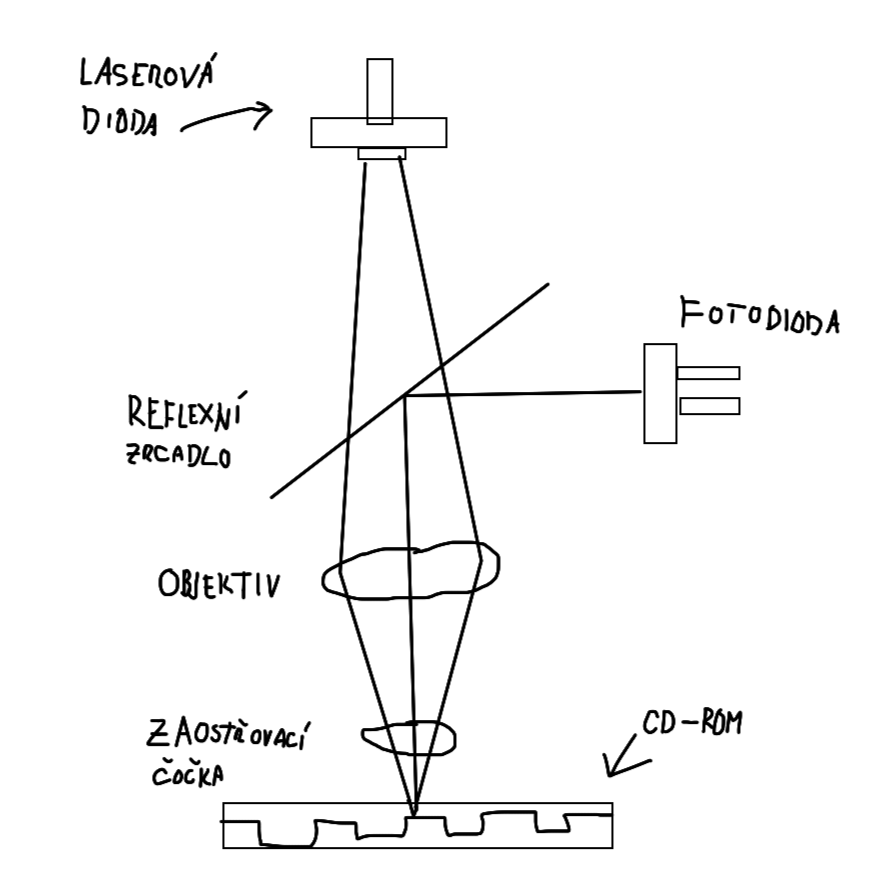 LASEROVÁ
DIODA
FOTODIODA
REFLEXNÍ
ZRCADLO
OBJEKTIV
ZAOSTŘOVACÍ
ČOČKA
CD-ROM